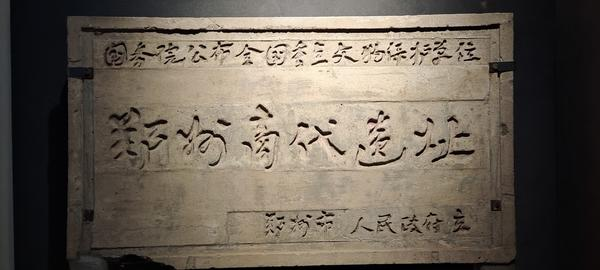 国务院公布全国重点文物保护单位
郑州商代遗址
郑州市 人民政府立